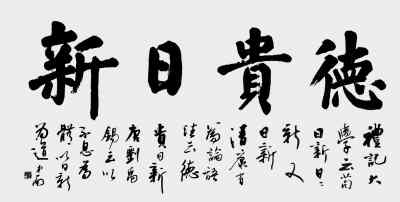 德貴日新
禮記大
學云苟
日新日〻
新又
日新
清康有
為論語
注云德
貴日新
唐劉禹
錫云以
不息為
體以日新
為道